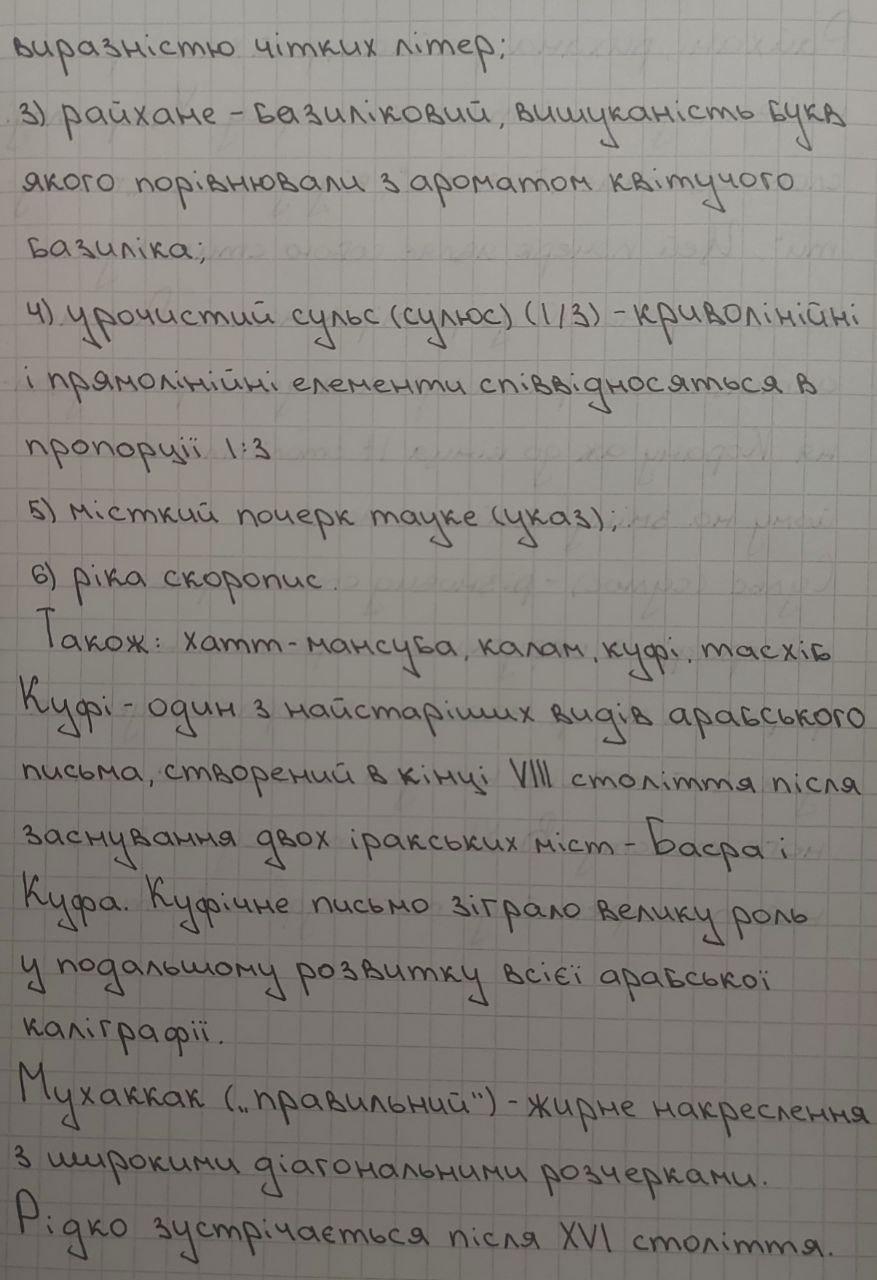 виразністю чітких літер;
3) райхане - базиліковий, вишуканість букв
якого порівнювали з ароматом квітучого
базиліка;
4) урочистий сульс (сулюс) (1/3) - криволінійні
і прямолінійні елементи співвідносяться в
пропорції 1:3
5) місткий почерк тауке (указ);
6) ріка скоропис.
Також: хатт-мансуба, калам, куфі, масхіб
Куфі - один з найстаріших видів арабського
письма, створений в кінці VIII століття після
заснування двох іракських міст - Басра і
Куфа. Куфічне письмо зіграло велику роль
у подальшому розвитку всієї арабської
каліграфії.
Мухаккак („правильний") - жирне накреслення
з широкими діагональними розчерками.
Рідко зустрічається після XVI століття.